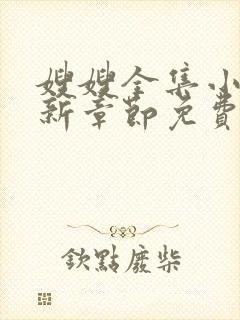 嫂嫂全集小
新章節免費
欽點廢柴